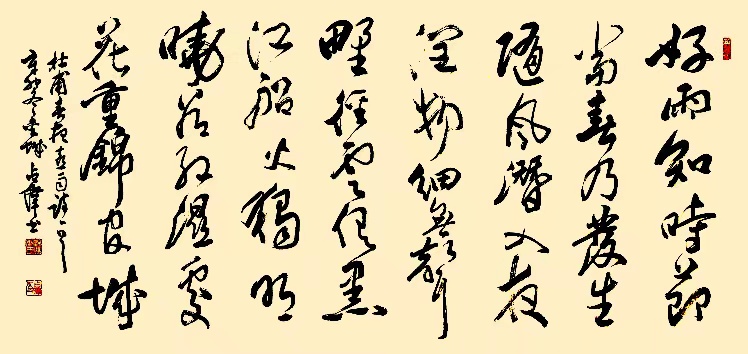 好雨知時節
當春乃發生
隨風潛入夜
潤物細無聲
野徑雲俱黑
江船火獨明
曉看紅濕處
花重錦官城
杜甫春夜喜雨詩一首